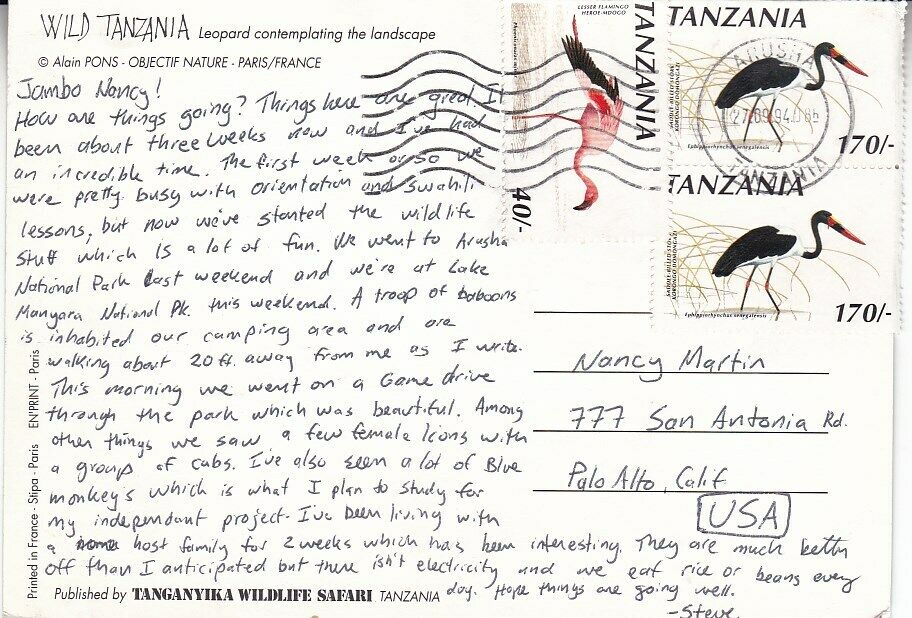 WILD TANZANIA Leopard contemplating the landscape
© Alain PONS - OBJECTIF NATURE - PARIS/FRANCE
Jambo Nancy!
How are things going? Things here are great. It
been about three weeks now and I've had
an incredible time. The first week or so we
were pretty busy with orientation and swahili
lessons, but now we've started the wildlife
stuff which is a lot of fun. We went to Arusha
National Park last weekend and we're at Lake
Manyara National Pk. this weekend. A troop of baboons
is inhabited our camping area and are
walking about 20 ft. away from me as I write.
This morning we went on a Game drive
through the park which was beautiful. Among
other things we saw a few female lions with
a group of cubs. I've also seen a lot of Blue
monkey's which is what I plan to study for
my independant project. I've been living with
a host family for 2 weeks which has been interesting. They are much better
off than I anticipated but there isn't electricity and we eat rice or beans every
day. Hope things are going well.
-Steve
Published by TANGANYIKA WILDLIFE SAFARI TANZANIA
Printed in France - Stipa - Paris EN'PRINT - Paris
LESSER FLAMINGO
HEROE-MDOGO
TANZANIA
40/-
TANZANIA
SADDLE-BILLED STORK
KORONGO DOMONGAZI
Ephippiorhynchus senegalensis
170/-
ARUSHA
27.09.94
TANZANIA
TANZANIA
SADDLE-BILLED STORK
KORONGO DOMONGAZI
Ephippiorhynchus senegalensis
170/-
Nancy Martin
777 San Antonia Rd.
Palo Alto, Calif
USA